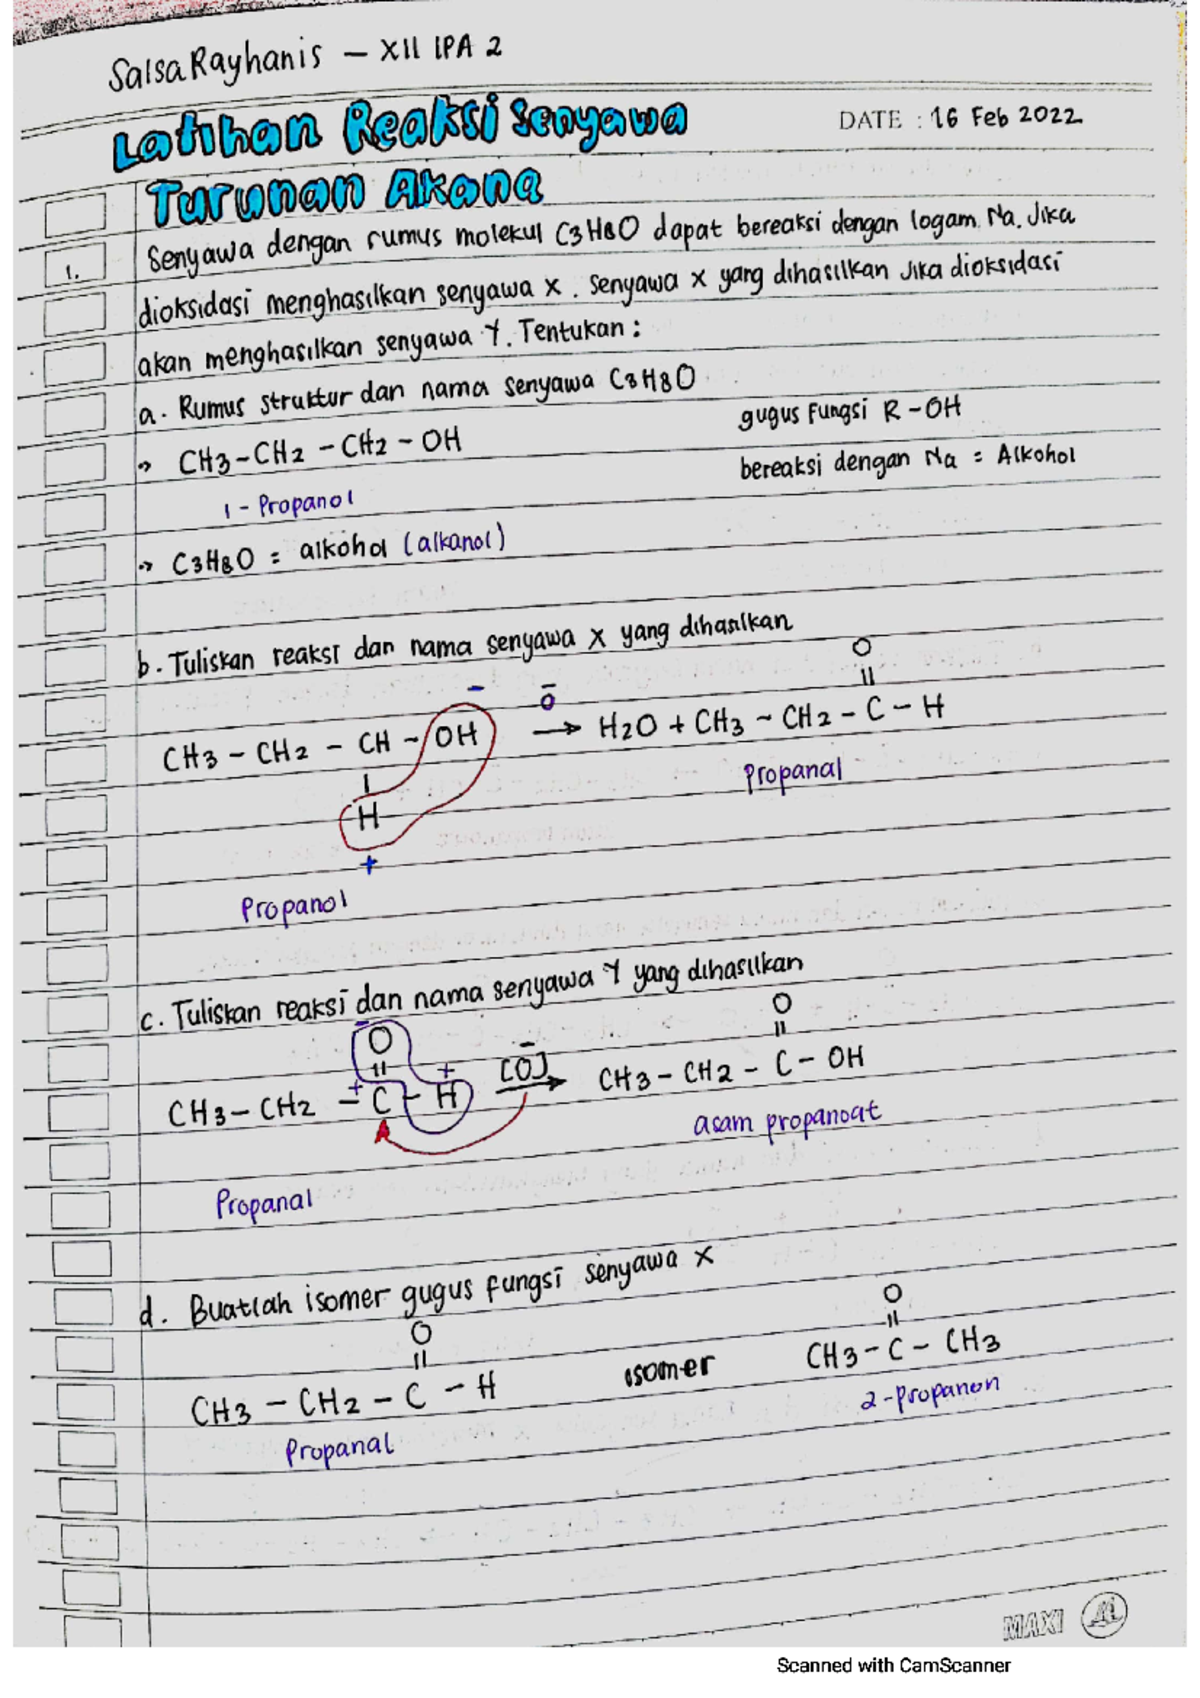 Salsa Rayhanis – XII IPA 2
Latihan Reaksi Senyawa
DATE : 16 Feb 2022
Turunan Akana
1. Senyawa dengan rumus molekul C3H8O dapat bereaksi dengan logam Na. Jika
dioksidasi menghasilkan senyawa x. Senyawa x yang dihasilkan Jika dioksidasi
akan menghasilkan senyawa Y. Tentukan :
a. Rumus struktur dan nama senyawa C3H8O
gugus fungsi R – OH
→ CH3 – CH2 – CH2 – OH
bereaksi dengan Na = Alkohol
1 - Propanol
→ C3H8O = alkohol (alkanol)
b. Tuliskan reaksi dan nama senyawa x yang dihasilkan
O
– ō ||
CH3 – CH2 – CH – OH → H2O + CH3 – CH2 – C – H
|
Propanal
H
+
Propanol
c. Tuliskan reaksi dan nama senyawa Y yang dihasilkan
– O
O || + [O] – ||
CH3 – CH2 – + C – H → CH3 – CH2 – C – OH
asam propanoat
Propanal
d. Buatlah isomer gugus fungsi senyawa x
O O
|| ||
CH3 – CH2 – C – H isomer CH3 – C – CH3
Propanal 2-Propanon
MAXI
Scanned with CamScanner